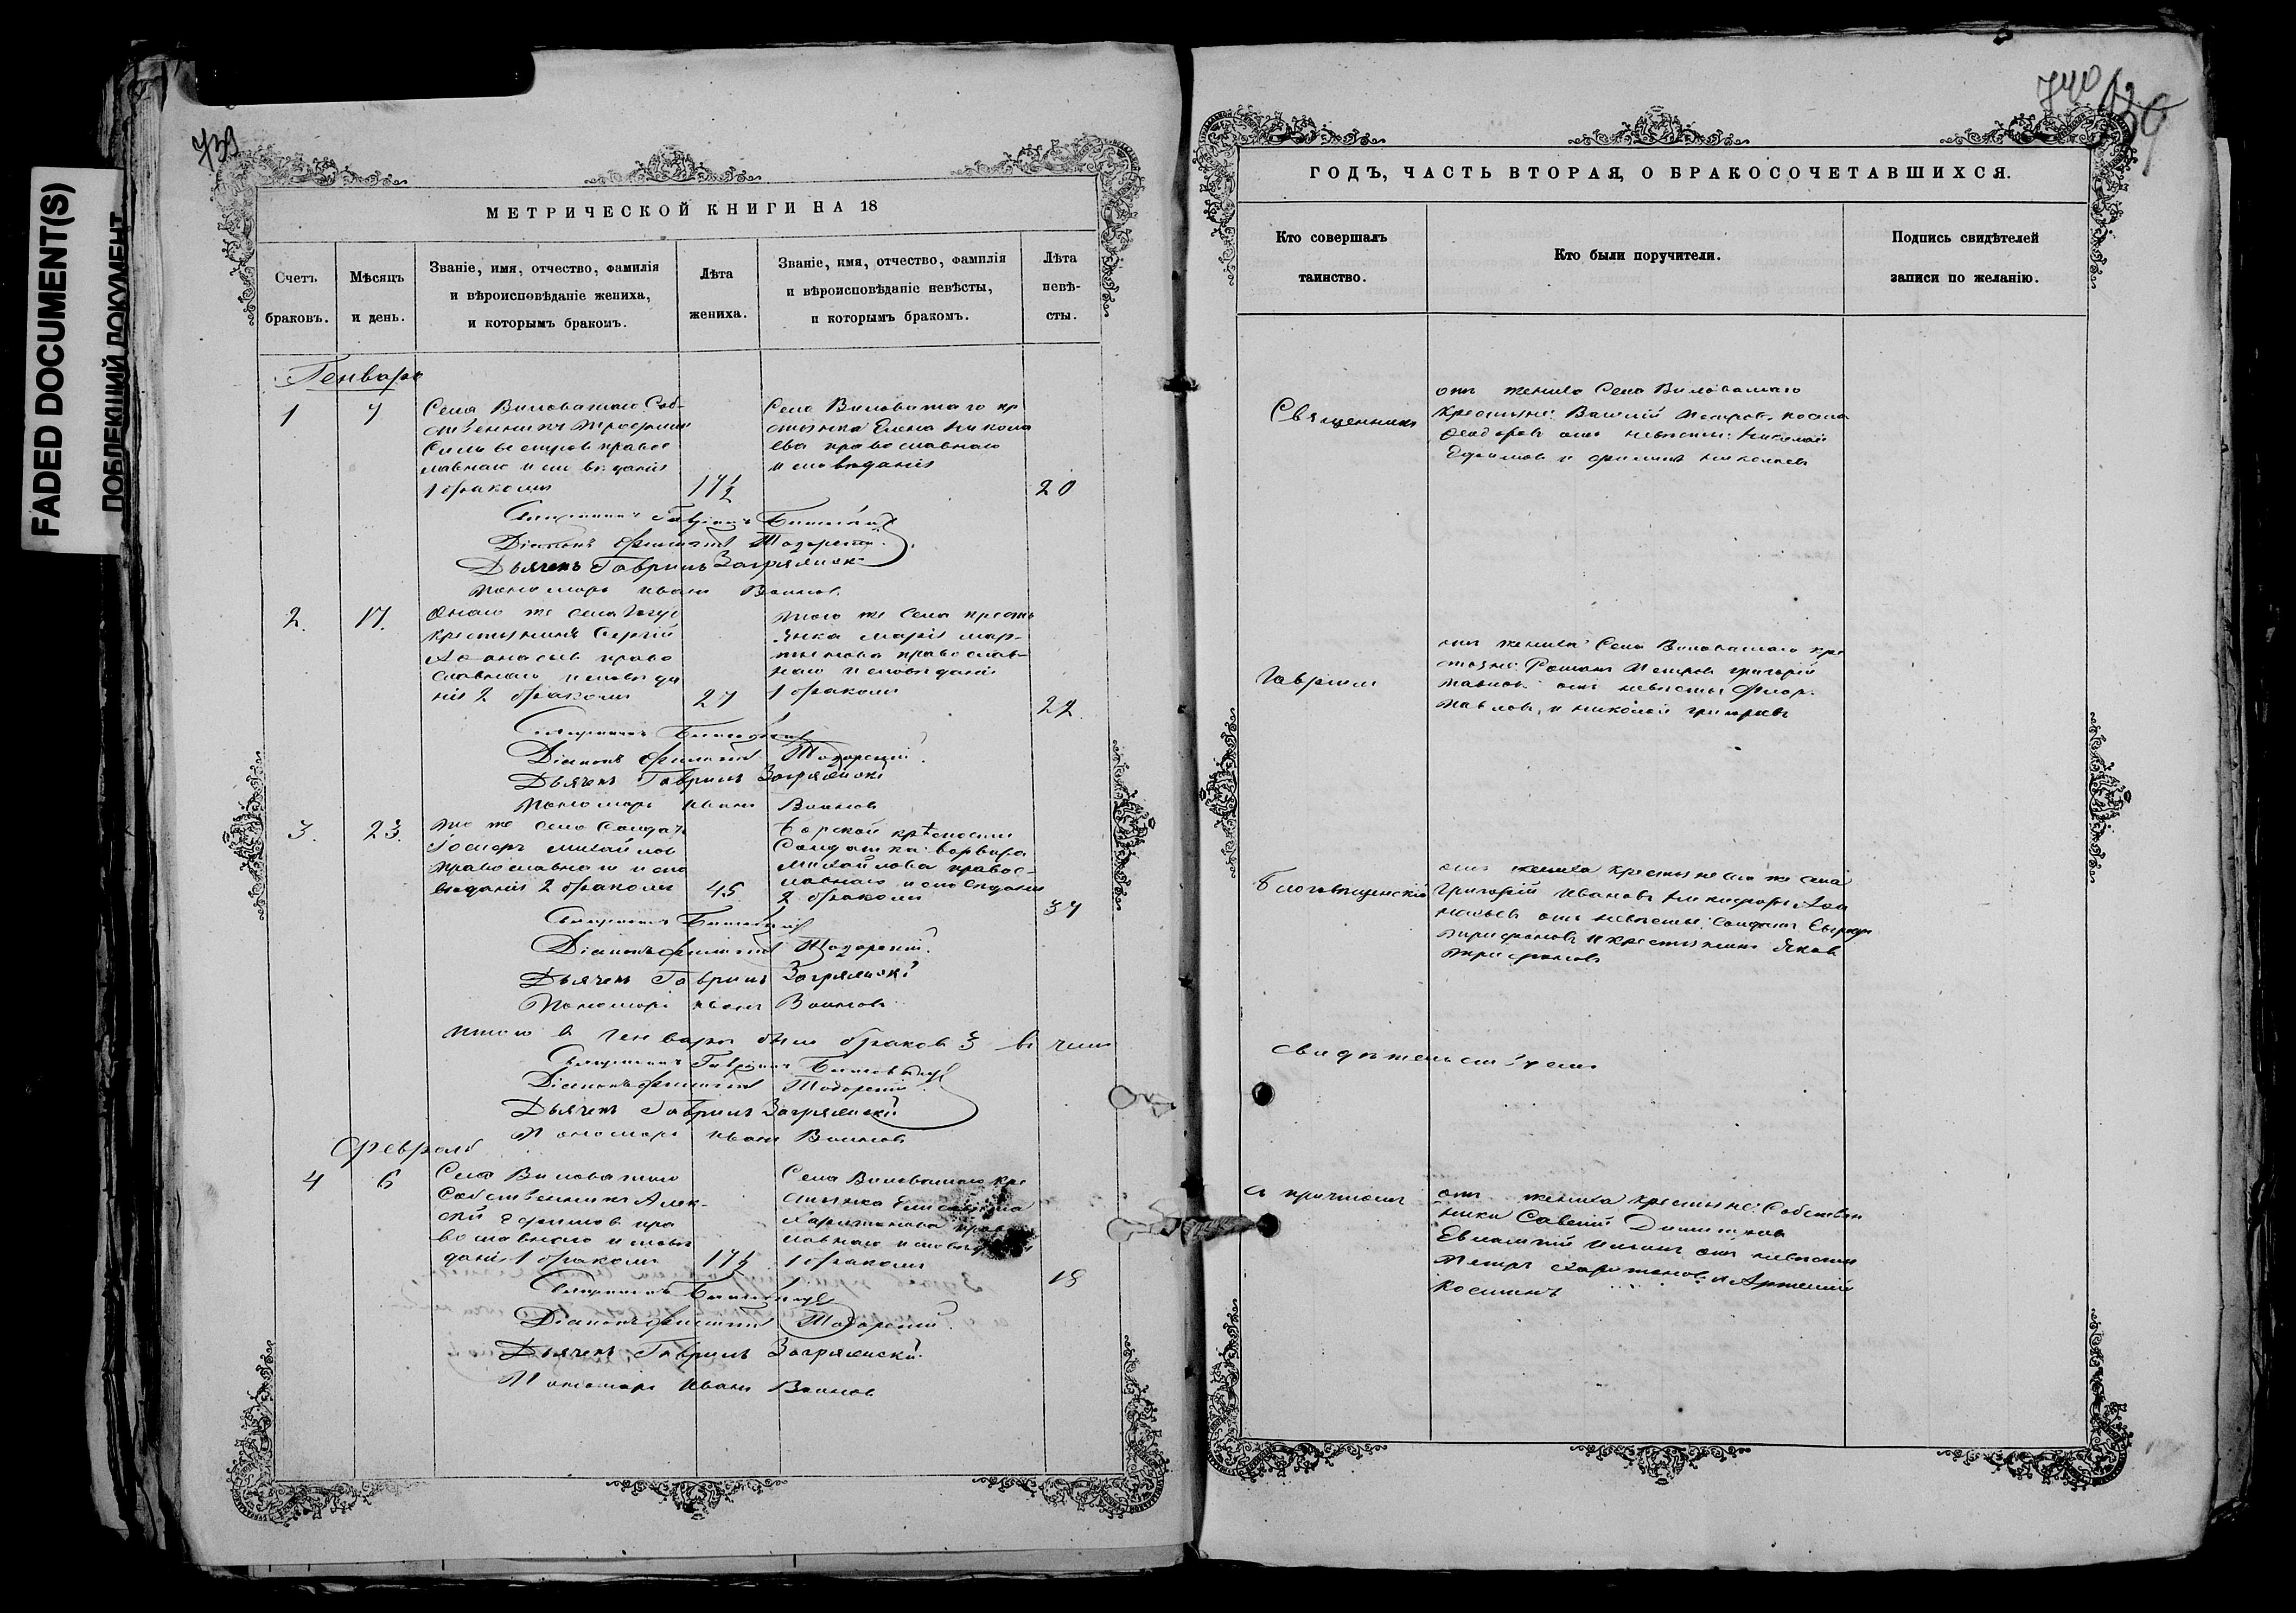 FADED DOCUMENT(S)
ПОБЛЕКШИЙ ДОКУМЕНТ
739
МЕТРИЧЕСКОЙ КНИГИ НА 18
Счетъ браковъ.
Мѣсяцъ и день.
Званіе, имя, отчество, фамилія
и вѣроисповѣданіе жениха,
и которымъ бракомъ.
Лѣта жениха.
Званіе, имя, отчество, фамилія
и вѣроисповѣданіе невѣсты,
и которымъ бракомъ.
Лѣта невѣ-
сты.
Генварь
1
7
Села Виловатаго Соб-
ственникъ Трофимъ
Сильвестровъ правос
лавнаго исповѣданія
1 бракомъ
17½
Села Виловатаго кр
стьянка Елена Никола
ева православнаго
исповѣданія
20
Священникъ Гавріилъ
Діаконъ Филиппъ
Дьячекъ Гавріилъ Загрямски
Пономарь Иванъ Воиновъ
2.
17.
Онаго же села
крестьянинъ Сергій
Аѳанасьевъ право
славнаго исповѣда
нія 2 бракомъ
27
того же села кресть
янка Марія Мар-
тынова православ-
наго исповѣданія
1 бракомъ
22.
Священникъ
Діаконъ Филиппъ
Дьячекъ Гавріилъ Загрямски
Пономарь Иванъ Воиновъ
3.
23.
того же села Солдатъ
Михайловъ
православнаго испо
вѣданія 2 бракомъ
45
Борской крѣпости
Солдатка Варвара
Михайлова правос-
лавнаго исповѣданія
2 бракомъ
37
Священникъ
Діаконъ Филиппъ
Дьячекъ Гавріилъ Загрямскі
Пономарь Иванъ Воиновъ
Итого въ Генварѣ было браковъ 3 въ чемъ
Священникъ Гавріилъ
Діаконъ Филиппъ
Дьячекъ Гавріилъ Загрямскі
Пономарь Иванъ Воиновъ
Февраль
4
6
Села Виловатаго
Собственникъ Алек-
сѣй Ефимовъ пра
вославнаго исповѣ
данія 1 бракомъ
17½
Села Виловатаго кре
стьянка Елисавета
Харитонова правос
лавнаго исповѣданія
1 бракомъ
18
Священникъ
Діаконъ Филиппъ
Дьячекъ Гавріилъ Загрямски
Пономарь Иванъ Воиновъ
740
ГОДЪ, ЧАСТЬ ВТОРАЯ, О БРАКОСОЧЕТАВШИХСЯ.
Кто совершалъ
таинство.
Кто были поручители.
Подпись свидѣтелей
записи по желанію.
Священникъ
отъ жениха Села Виловатаго
крестьяне: Василій Петровъ,
Ѳеодоровъ отъ невѣсты: Николай
Ефимовъ и Филиппъ Николаевъ
Гавріилъ
отъ жениха: Села Виловатаго кре
стьяне: Романъ Петровъ Григорій
Павловъ отъ невѣсты
Павловъ, и Николай Григорьевъ
Благовѣщенскій
отъ жениха крестьяне сего же села
Григорій Ивановъ Никифоръ Аѳа
насьевъ отъ невѣсты: Солдатъ
Трифоновъ и крестьянинъ Яковъ
Трифоновъ
свидѣтельствуемъ
съ причтомъ
отъ жениха крестьяне: Собствен
ники Савелій
Евлампій отъ невѣсты
Петръ Харитоновъ и Артемій
Косминъ